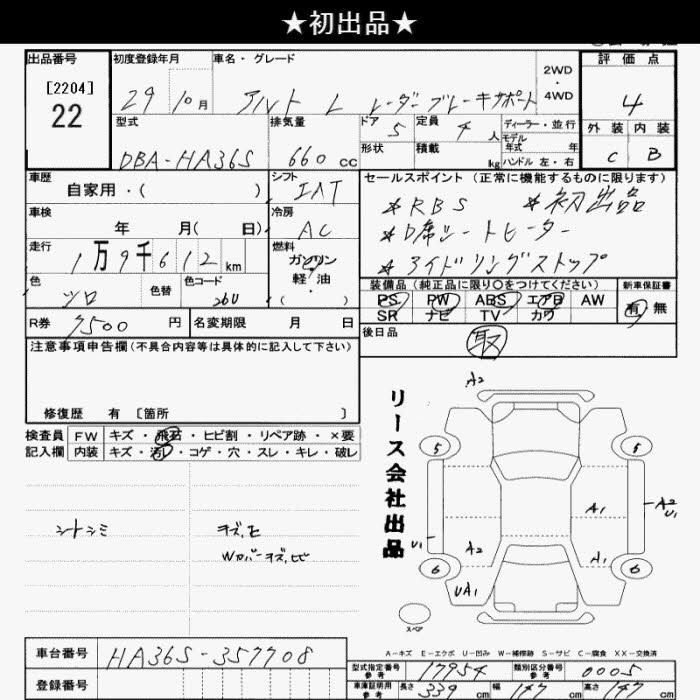 ★初出品★
出品番号 初度登録年月 車名・グレード 2WD・4WD 評価点
[2204]
22
29 10月 アルト L レーダーブレーキサポート 4
型式 排気量 ドア 5 定員 4人 ディーラー・並行 外装 内装
DBA-HA36S 660cc 形状 積載 kg モデル年式 年 ハンドル 左・右 C B
車歴 シフト セールスポイント (正常に機能するものに限ります)
自家用・( ) IAT ＊RBS ＊初出品
車検 冷房 ＊D席シートヒーター
年 月( 日) AC ＊アイドリングストップ
走行 燃料
1万9千612km ガソリン 軽油・( )
色 色替 色コード 装備品(純正品に限り〇をつけてください) 新車保証書
シロ 26U PS PW ABS エアB AW 有 無
SR ナビ TV カワ
R券 7500円 名変期限 月 日 後日品 取
注意事項申告欄(不具合内容等は具体的に記入して下さい)
修復歴 有 [箇所 ]
検査員 FW キズ・飛石・ヒビ割・リペア跡・×要
記入欄 内装 キズ・汚レ・コゲ・穴・スレ・キレ・破レ
シートシミ
リース会社出品
A2
5 5
A1
A2
U1
U1
A2
A1
6 6
UA1
スペア
A-キズ E-エクボ U-凹み W-補修跡 S-サビ C-腐食 XX-交換済
車台番号 HA36S-357708
型式指定番号 参考 17954 類別区分番号 参考 0005
登録番号
車庫証明用 参考 長さ 339cm 幅 147cm 高さ 147cm